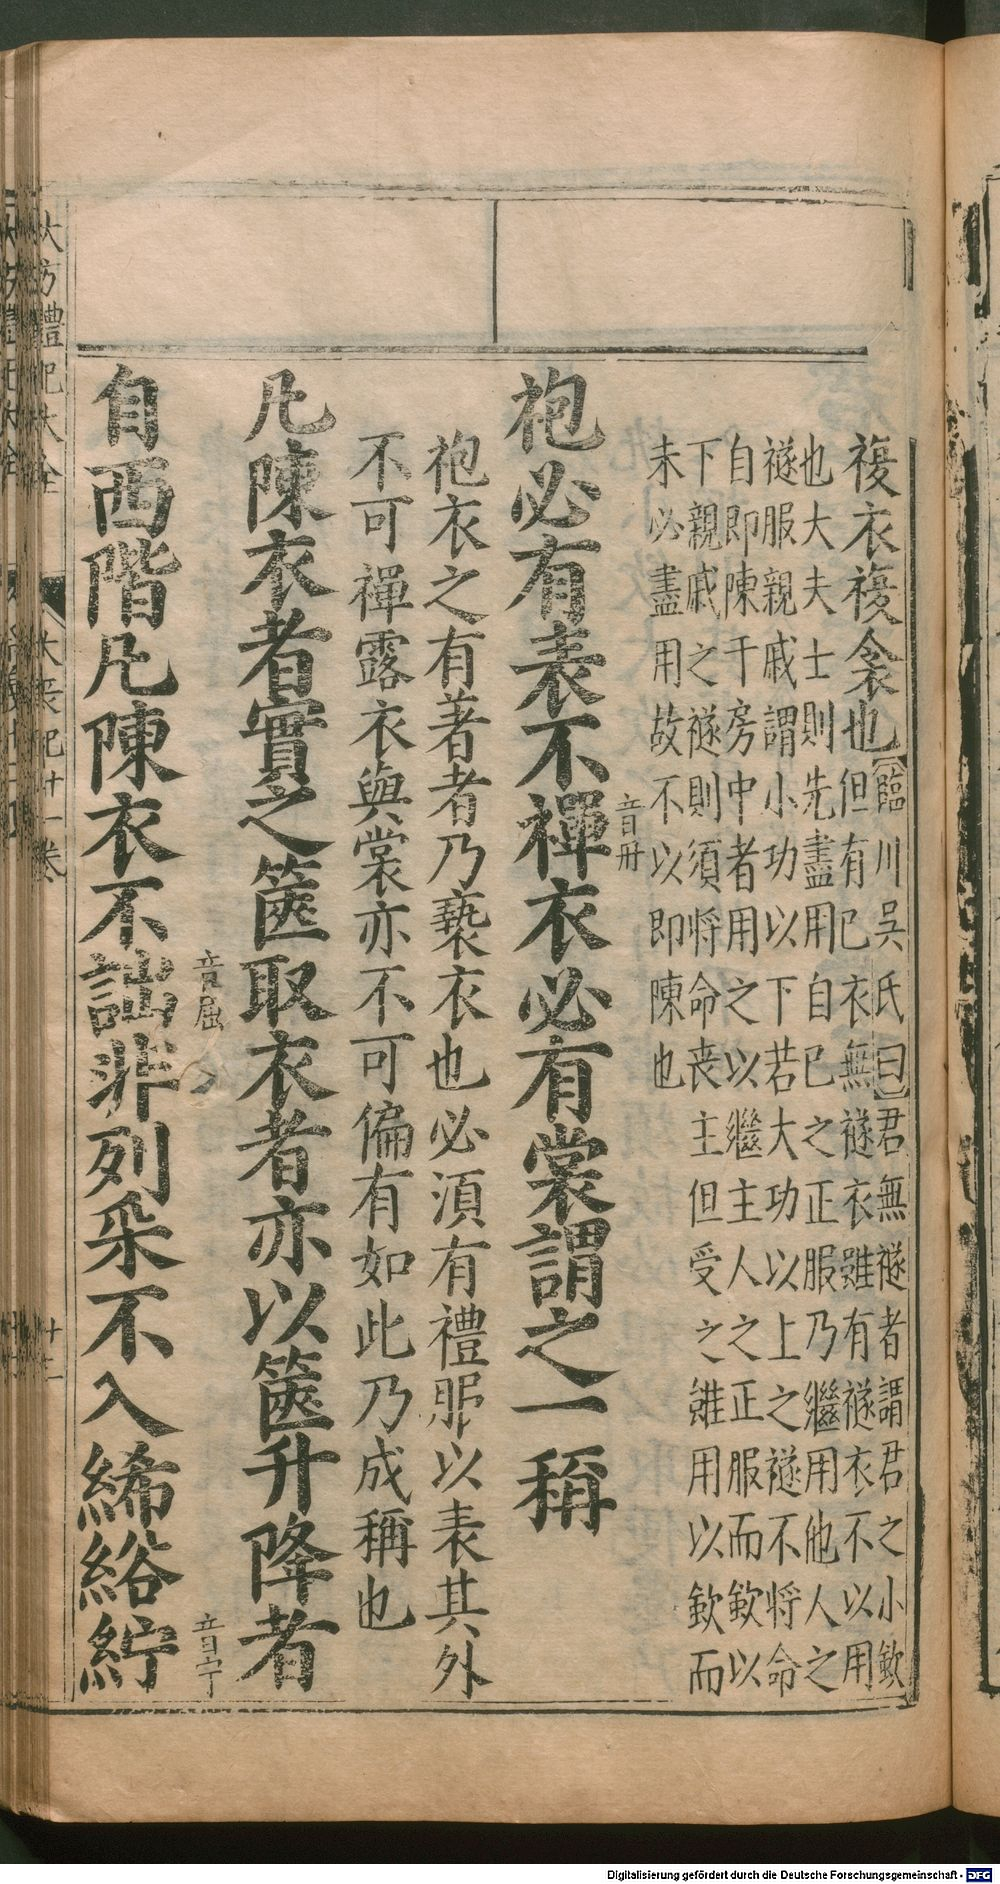 複衣複衾也【臨川吳氏曰】君無襚者謂君之小歛
但有已衣無襚衣雖有襚衣不以用
也大夫士則先盡用自已之正服乃繼用他人之
襚服親戚謂小功以下若大功以上之襚不將命
自即陳于房中者用之以繼主人之正服而歛以
下親戚之襚則須將命丧主但受之雖用以歛而
未必盡用故不以即陳也
袍必有表不襌衣必有裳謂之一稱
音丹
袍衣之有著者乃褻衣也必湏有禮服以表其外
不可襌露衣與裳亦不可偏有如此乃成稱也
凡陳衣者實之篋取衣者亦以篋升降者
自西階凡陳衣不詘非列采不入絺綌紵
音屈
音宁
大方禮記大全
大丧記廿一卷
十二
Digitalisierung gefördert durch die Deutsche Forschungsgemeinschaft - DFG